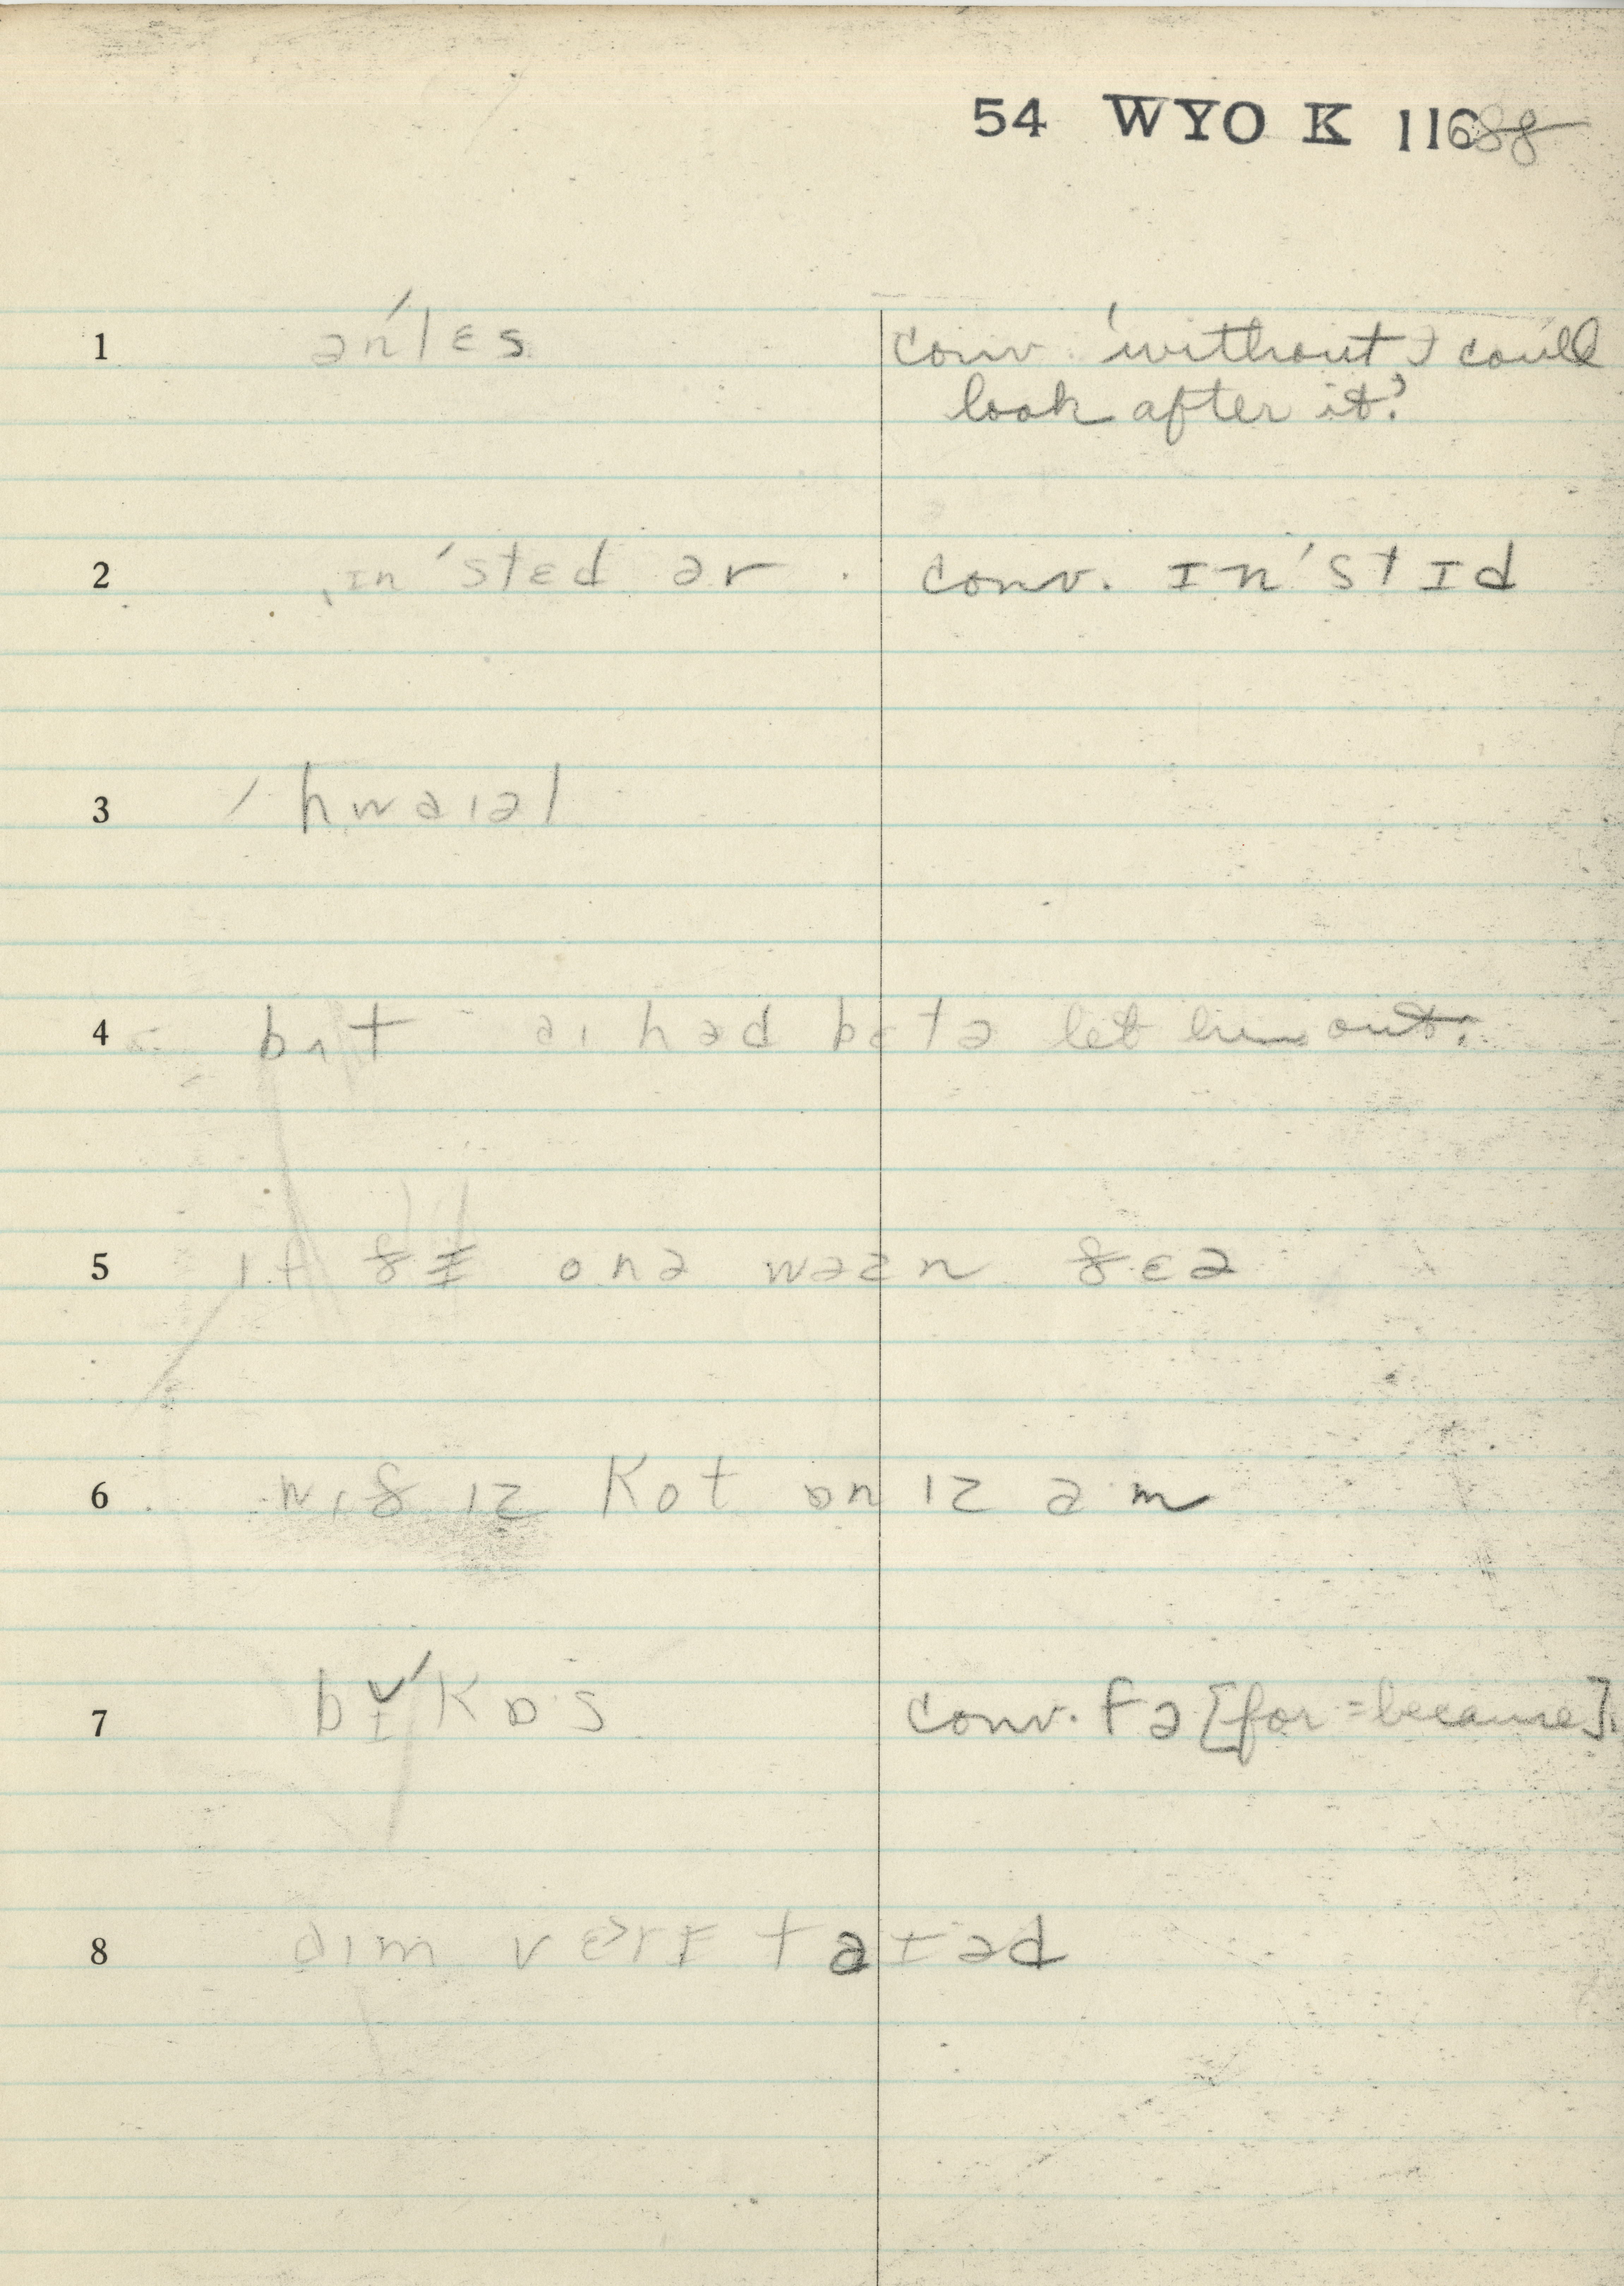 54 WYO K 116 88
1 ənˈlɛs conv. 'without I could
look after it.'
2 ˌɪnˈstɛd ər . conv. ɪnˈstɪd
3 / hwaɪəl
4 bʌt aɪ həd bɛtə let him out.
5 ɪf ðɪ onə wəzn ðɛə
6 wɪð ɪz kot ɒn ɪz am
7 bɪˈkɒs conv. fə [for = because].
8 aɪm vɛrɪ taɪəd